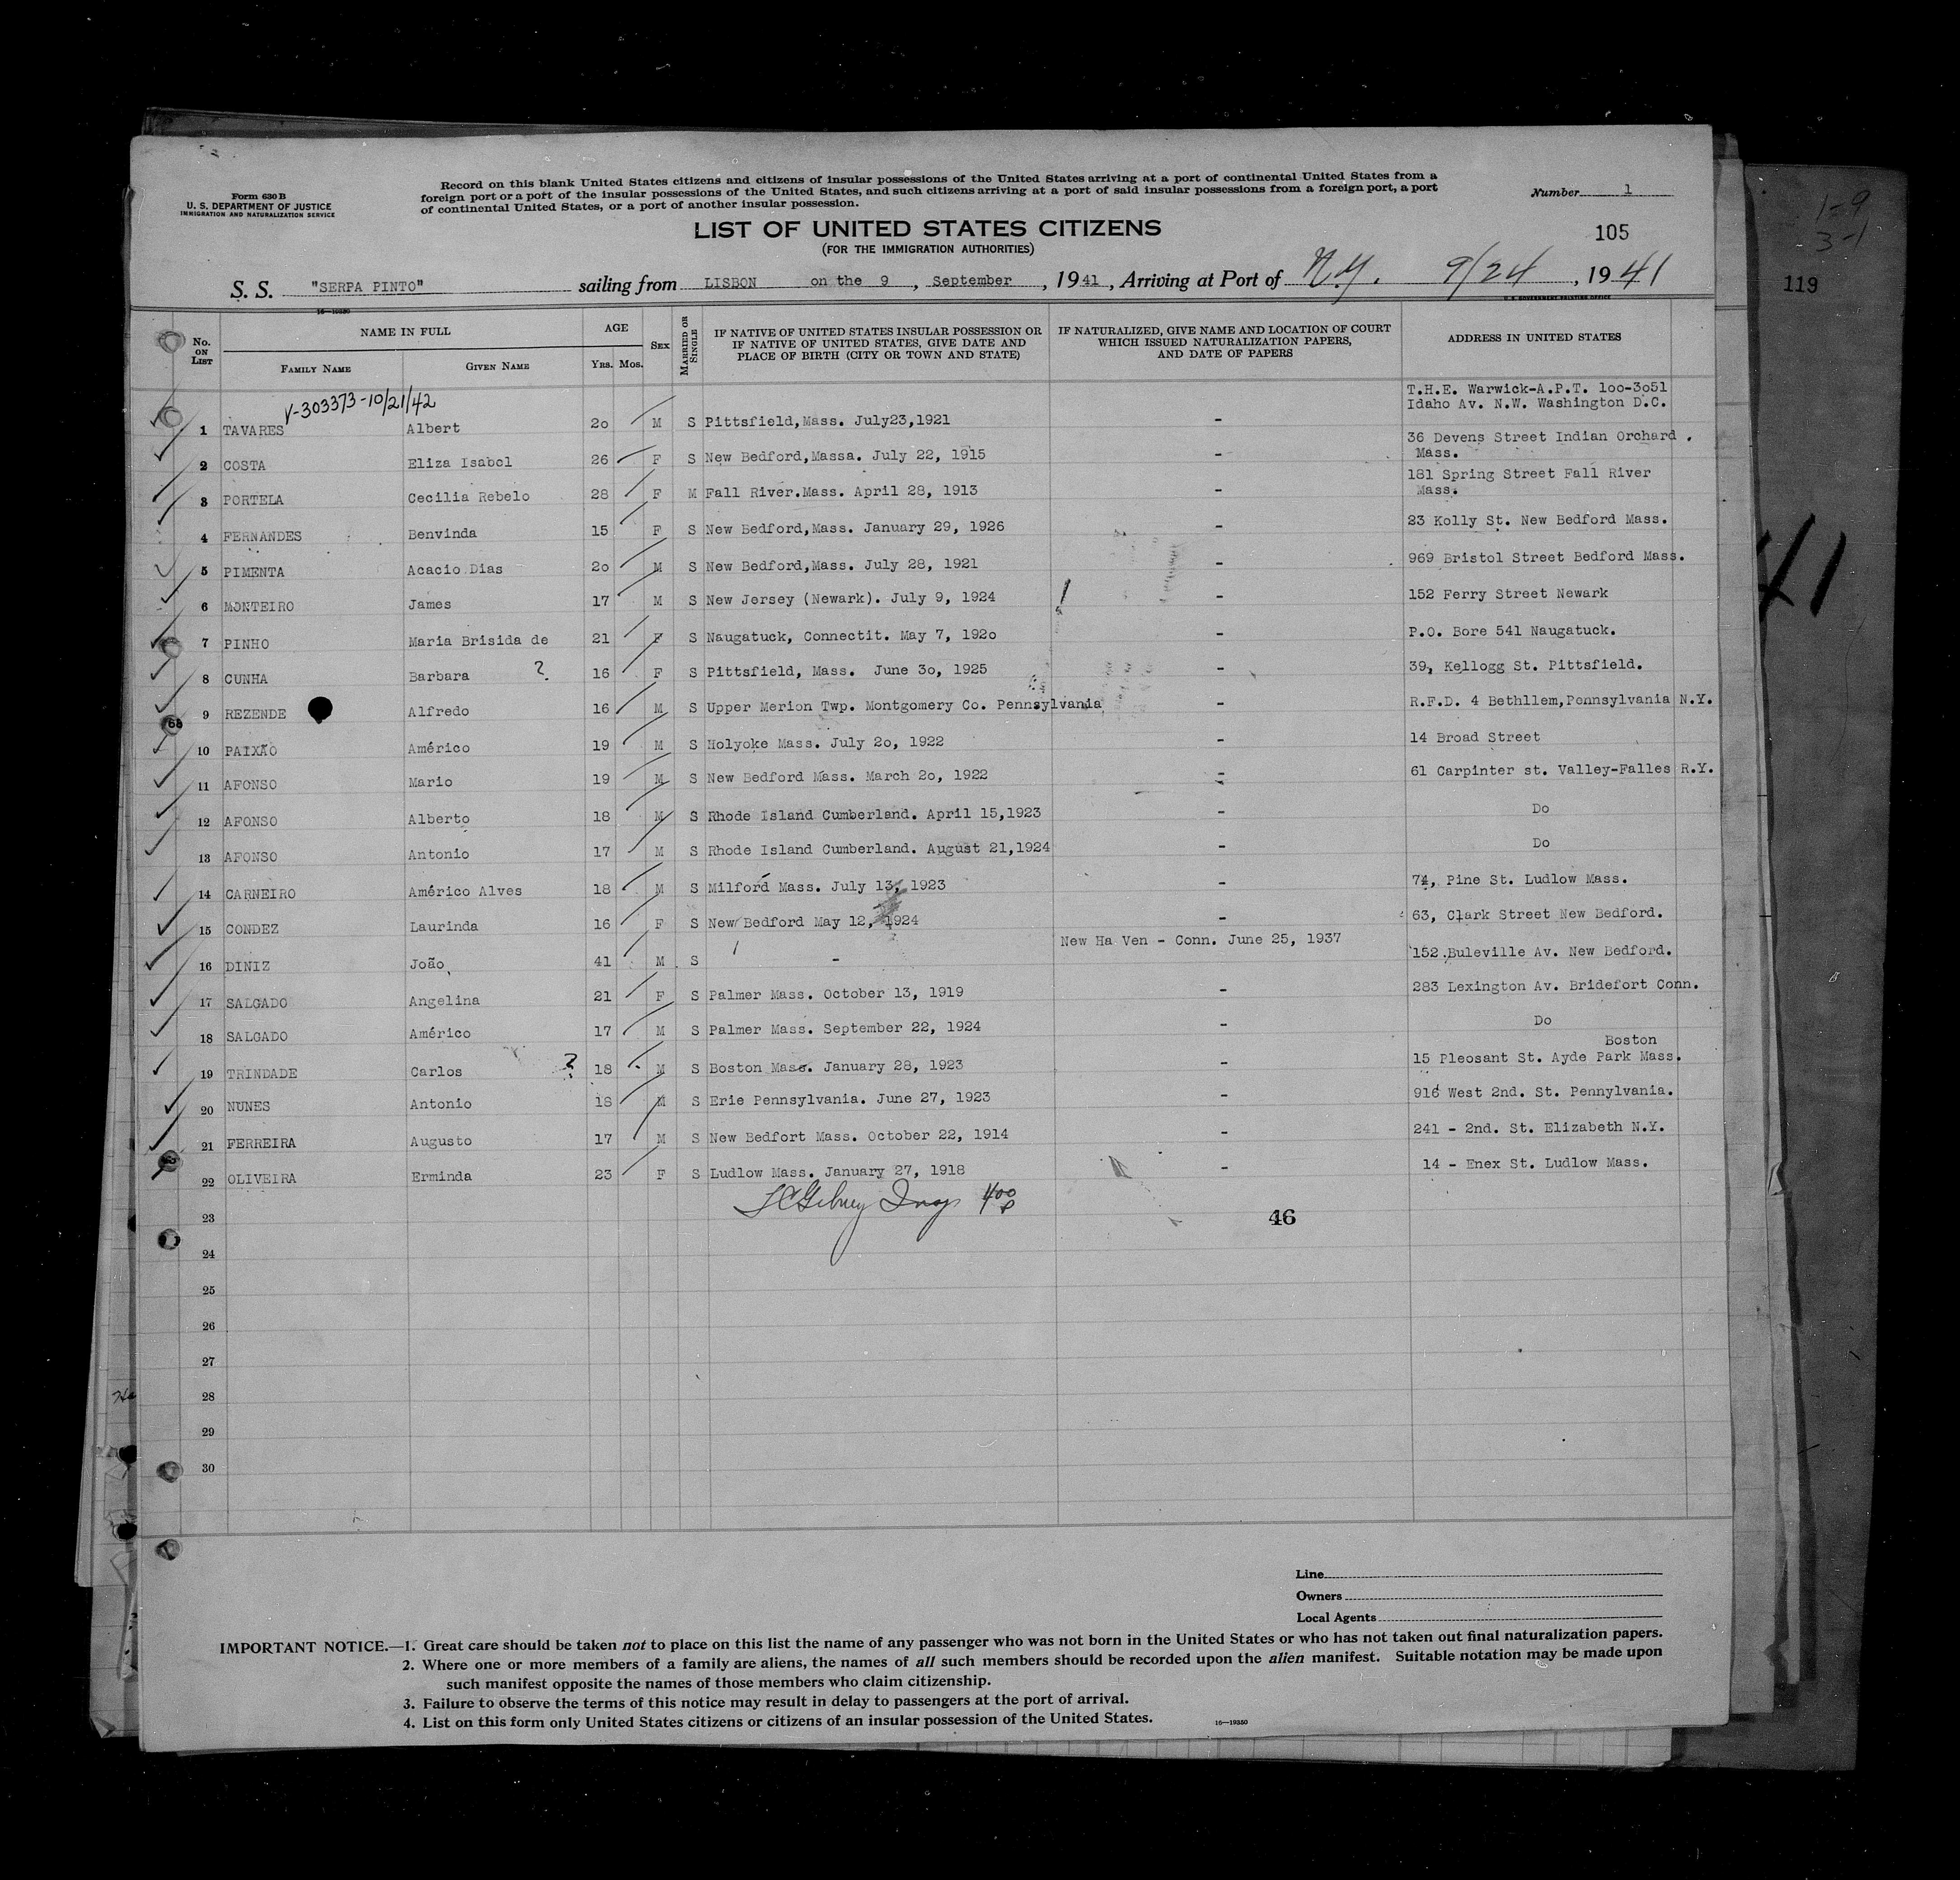 Form 630 B
U. S. DEPARTMENT OF JUSTICE
IMMIGRATION AND NATURALIZATION SERVICE
Record on this blank United States citizens and citizens of insular possessions of the United States arriving at a port of continental United States from a
foreign port or a port of the insular possessions of the United States, and such citizens arriving at a port of said insular possessions from a foreign port, a port
of continental United States, or a port of another insular possession.
Number 1
LIST OF UNITED STATES CITIZENS
(FOR THE IMMIGRATION AUTHORITIES)
105
S. S. "SERPA PINTO" sailing from LISBON on the 9 , September , 1941 , Arriving at Port of N.Y. 9/24 , 1941
1-9
3-1
119
41
16—19350
U. S. GOVERNMENT PRINTING OFFICE
No. ON LIST
NAME IN FULL
FAMILY NAME
GIVEN NAME
AGE
YRS. MOS.
SEX
MARRIED OR SINGLE
IF NATIVE OF UNITED STATES INSULAR POSSESSION OR
IF NATIVE OF UNITED STATES, GIVE DATE AND
PLACE OF BIRTH (CITY OR TOWN AND STATE)
IF NATURALIZED, GIVE NAME AND LOCATION OF COURT
WHICH ISSUED NATURALIZATION PAPERS,
AND DATE OF PAPERS
ADDRESS IN UNITED STATES
V-303373-10/21/42
T.H.E. Warwick-A.P.T. 1oo-3o51
Idaho Av. N.W. Washington D.C.
1 TAVARES Albert 2o M S Pittsfield,Mass. July23,1921 -
2 COSTA Eliza Isabel 26 F S New Bedford,Massa. July 22, 1915 - 36 Devens Street Indian Orchard .
Mass.
3 PORTELA Cecilia Rebelo 28 F M Fall River.Mass. April 28, 1913 - 181 Spring Street Fall River
Mass.
4 FERNANDES Benvinda 15 F S New Bedford,Mass. January 29, 1926 - 23 Kolly St. New Bedford Mass.
5 PIMENTA Acacio Dias 2o M S New Bedford,Mass. July 28, 1921 - 969 Bristol Street Bedford Mass.
6 MONTEIRO James 17 M S New Jersey (Newark). July 9, 1924 - 152 Ferry Street Newark
7 PINHO Maria Brisida de 21 F S Naugatuck, Connectit. May 7, 192o - P.O. Bore 541 Naugatuck.
8 CUNHA Barbara ? 16 F S Pittsfield, Mass. June 3o, 1925 - 39, Kellogg St. Pittsfield.
9 REZENDE Alfredo 16 M S Upper Merion Twp. Montgomery Co. Pennsylvania - R.F.D. 4 Bethllem,Pennsylvania N.Y.
10 PAIXÃO Américo 19 M S Holyoke Mass. July 2o, 1922 - 14 Broad Street
11 AFONSO Mario 19 M S New Bedford Mass. March 2o, 1922 - 61 Carpinter st. Valley-Falles R.Y.
12 AFONSO Alberto 18 M S Rhode Island Cumberland. April 15,1923 - Do
13 AFONSO Antonio 17 M S Rhode Island Cumberland. August 21,1924 - Do
14 CARNEIRO Américo Alves 18 M S Milford Mass. July 13, 1923 - 74, Pine St. Ludlow Mass.
15 CONDEZ Laurinda 16 F S New Bedford May 12, 1924 - 63, Clark Street New Bedford.
16 DINIZ João 41 M S - New Ha Ven - Conn. June 25, 1937 152 Buleville Av. New Bedford.
17 SALGADO Angelina 21 F S Palmer Mass. October 13, 1919 - 283 Lexington Av. Bridefort Conn.
18 SALGADO Américo 17 M S Palmer Mass. September 22, 1924 - Do
Boston
19 TRINDADE Carlos ? 18 M S Boston Mass. January 28, 1923 - 15 Pleosant St. Ayde Park Mass.
20 NUNES Antonio 18 M S Erie Pennsylvania. June 27, 1923 - 916 West 2nd. St. Pennylvania.
21 FERREIRA Augusto 17 M S New Bedfort Mass. October 22, 1914 - 241 - 2nd. St. Elizabeth N.Y.
22 OLIVEIRA Erminda 23 F S Ludlow Mass. January 27, 1918 - 14 - Enex St. Ludlow Mass.
23 46
24
25
26
27
28
29
30
Line
Owners
Local Agents
IMPORTANT NOTICE.—1. Great care should be taken not to place on this list the name of any passenger who was not born in the United States or who has not taken out final naturalization papers.
2. Where one or more members of a family are aliens, the names of all such members should be recorded upon the alien manifest. Suitable notation may be made upon
such manifest opposite the names of those members who claim citizenship.
3. Failure to observe the terms of this notice may result in delay to passengers at the port of arrival.
4. List on this form only United States citizens or citizens of an insular possession of the United States.
16—19350